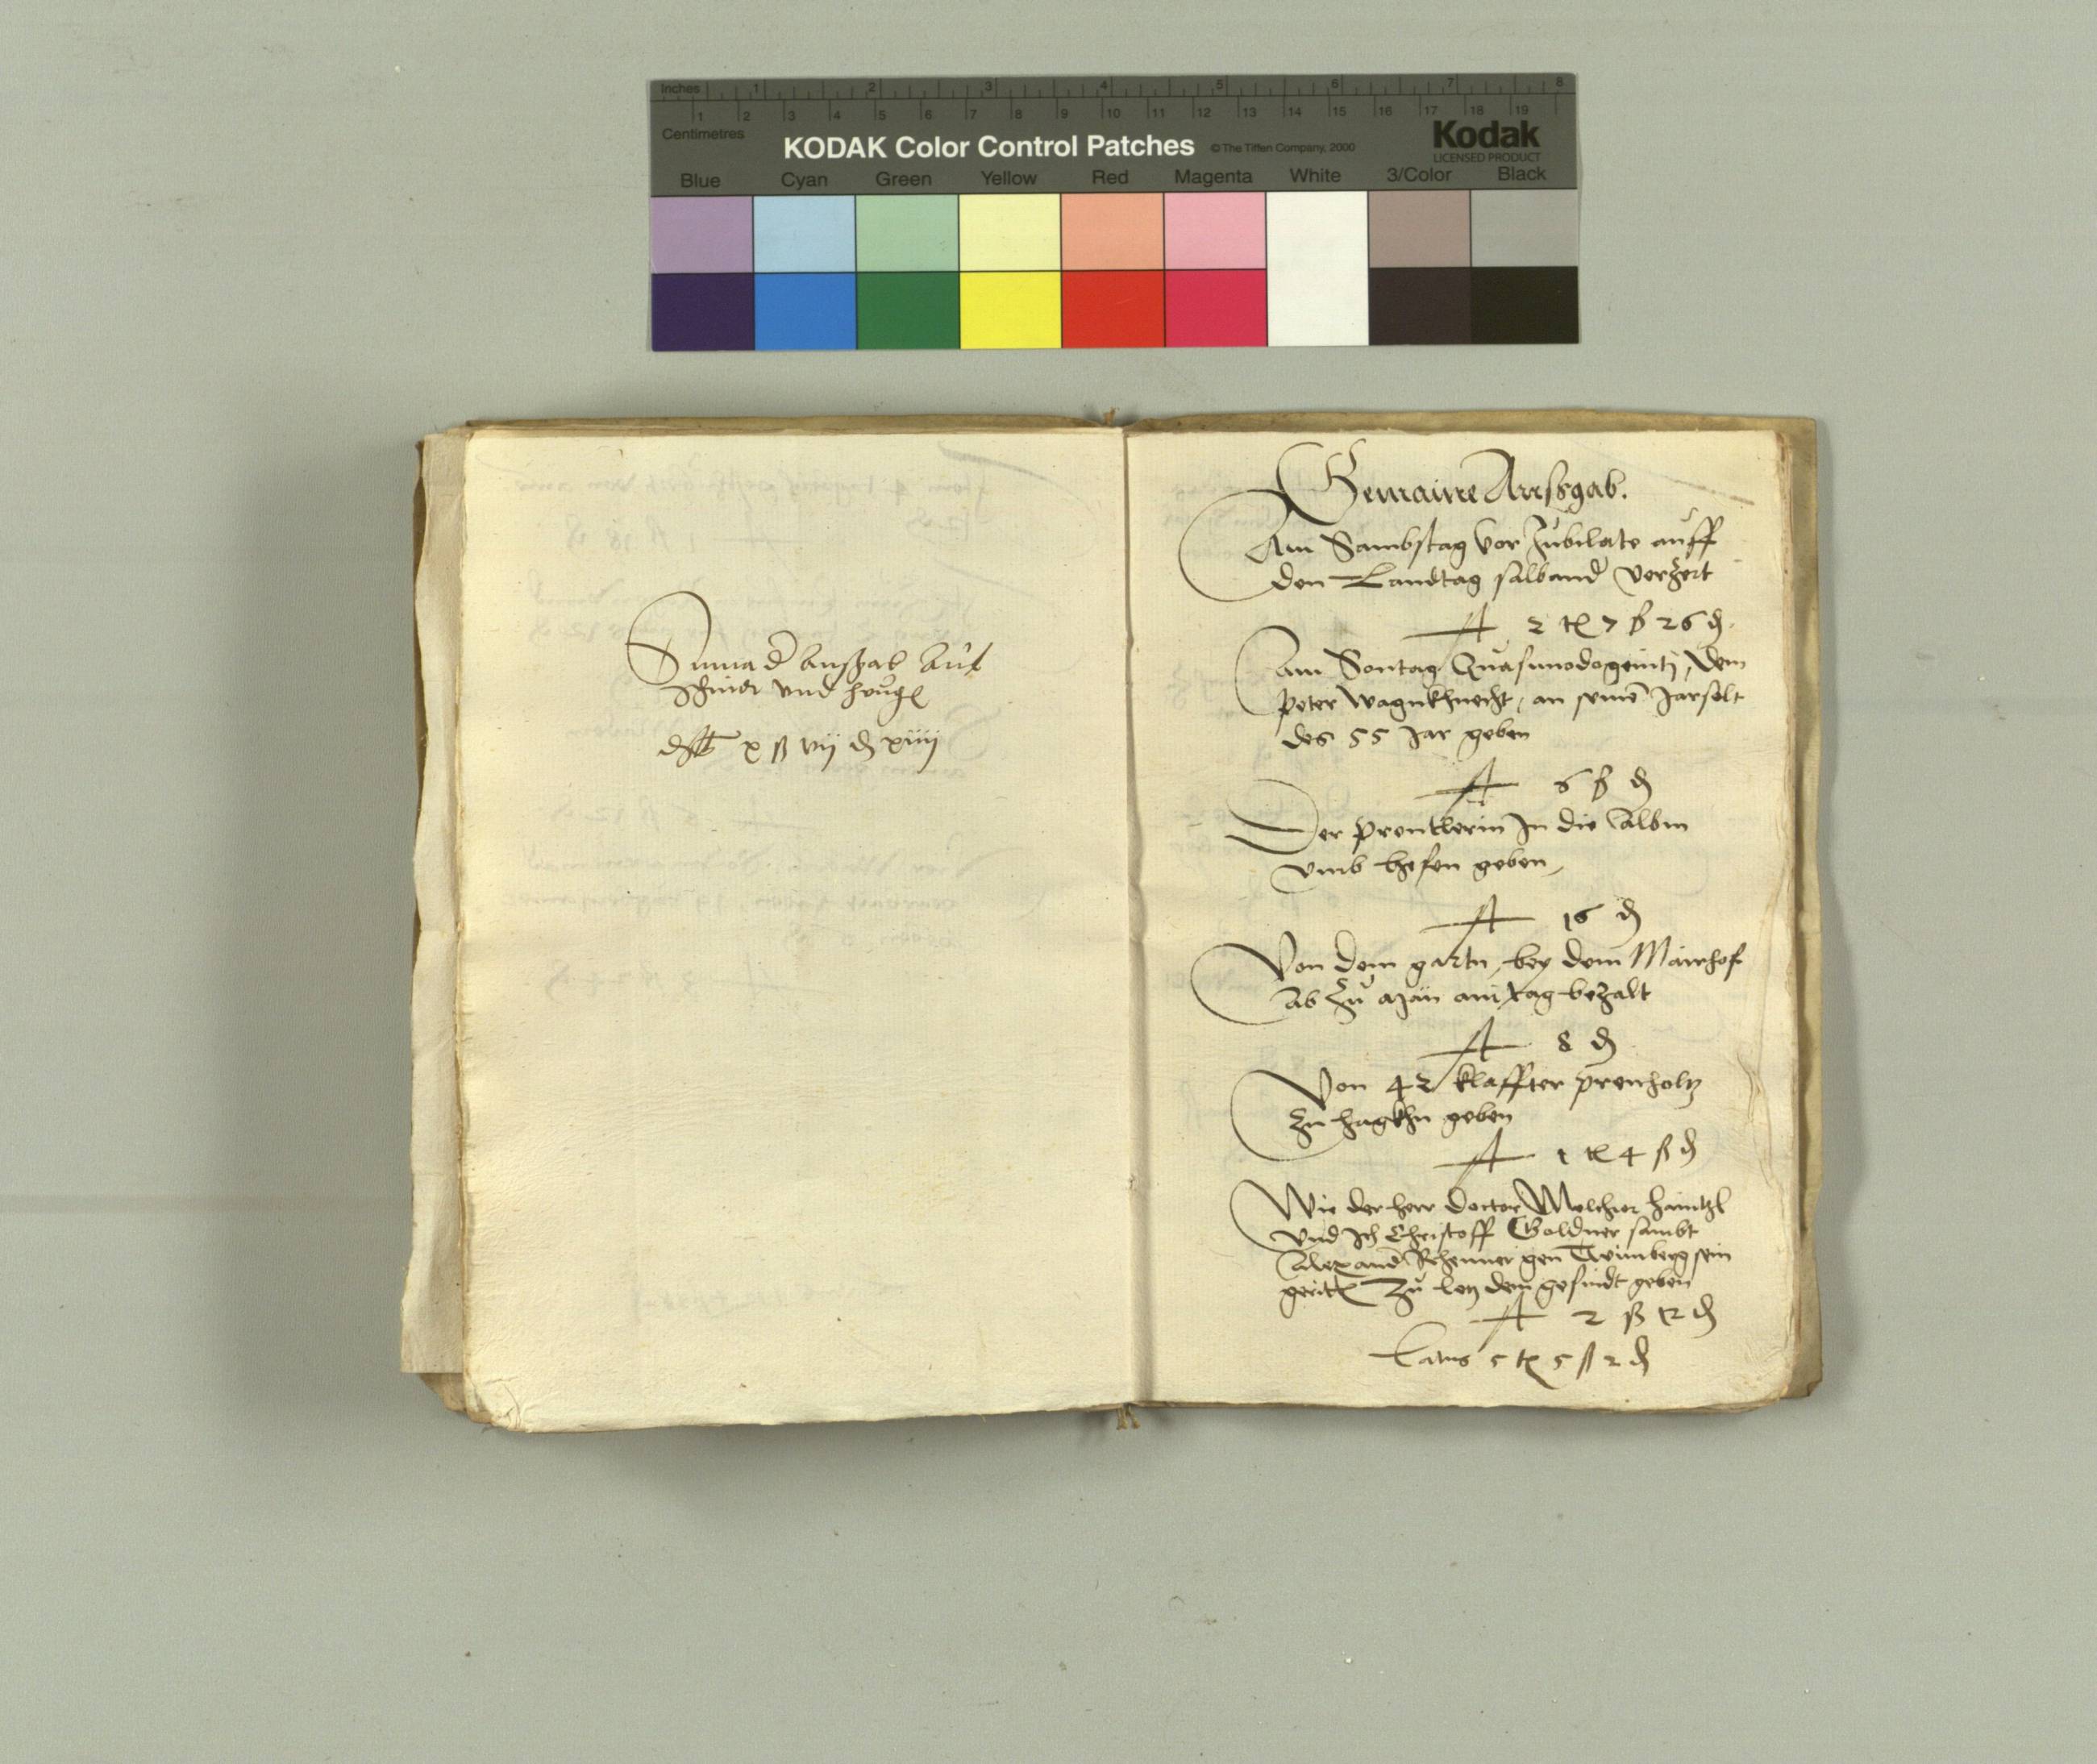 Inches 1 2 3 4 5 6 7 8
1 2 3 4 5 6 7 8 9 10 11 12 13 14 15 16 17 18 19
Centimetres
KODAK Color Control Patches © The Tiffen Company, 2000 Kodak
LICENSED PRODUCT
Blue Cyan Green Yellow Red Magenta White 3/Color Black
Suma d Ausgab Auf
und
x ß vij d xiiij
Gemaine Aussgab.
Am Sambstag vor Jubilate auff
den Landtag selband verzert
2 tl 7 ß 26 d
Am Sontag Quasimodogeniti, dem
Peter Wagnkhnecht, an seine Jarsolt
des 55 Jar geben
6 ß d
Der Prentlerin In die Albm
umb hefen geben
16 d
Von dem gartn, bey dem Mairhof
ab zu main tag bezalt
8 d
Von 42 klaffter prenholtz
zu hagkhn geben
1 tl 4 ß d
Wie der herr Doctor Melchior
und Ich Christoff Goldner sambt
Alexand gen sein
geritt zu letz dem gesindt geben
2 ß 12 d
Latus 5 tl 5 ß 2 d